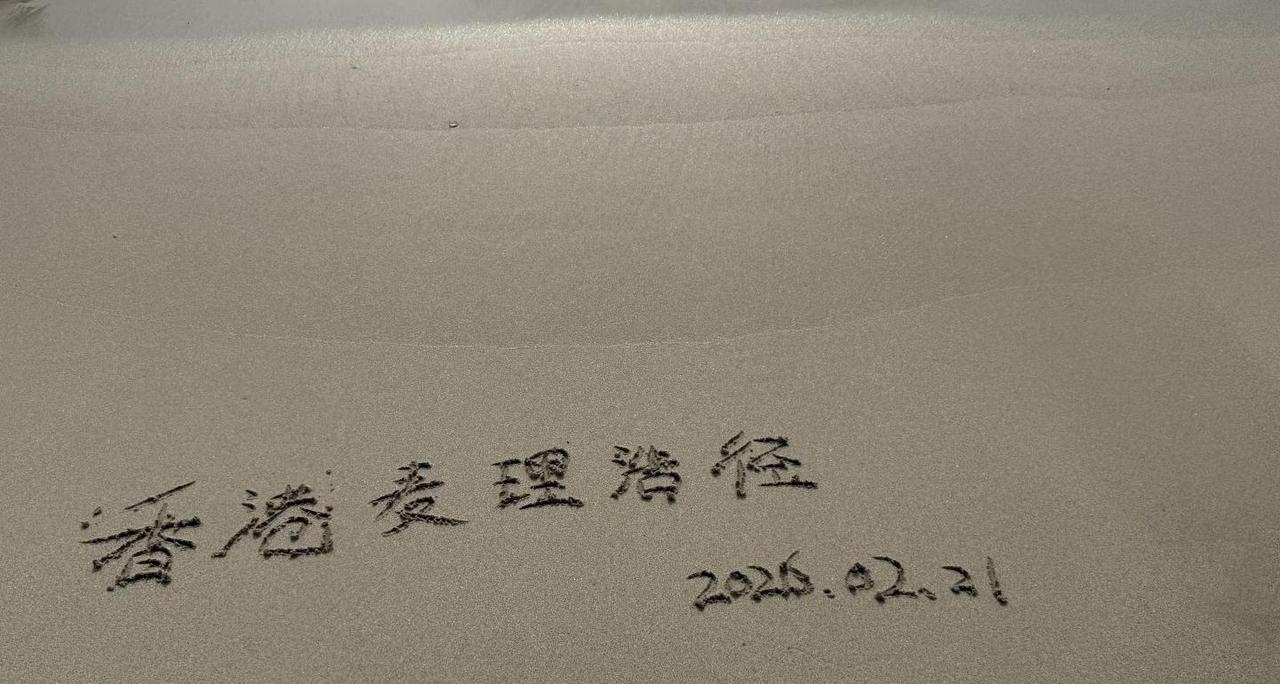 香港麦理浩径
2026.02.21